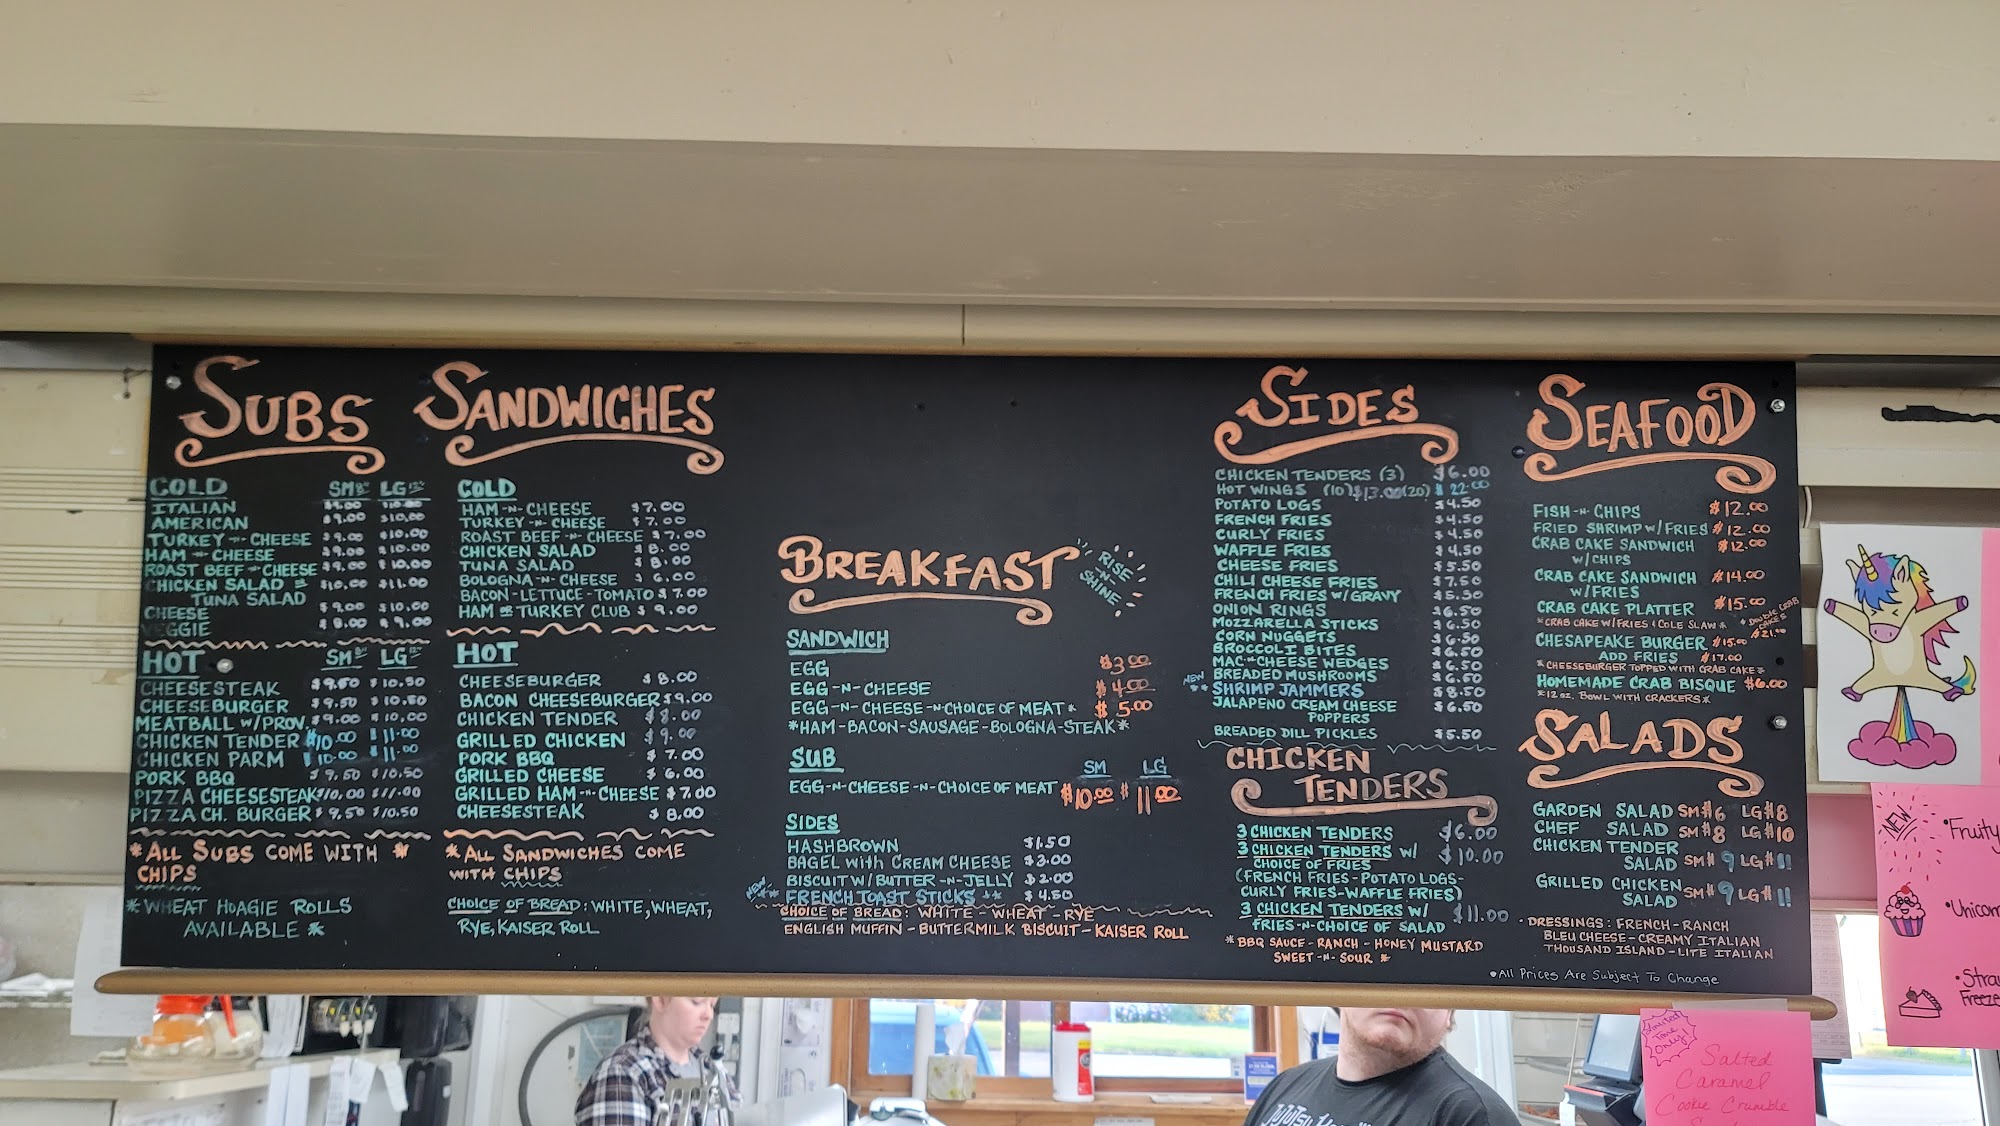 SUBS
COLD SM 8" LG 12"
ITALIAN $9.00 $10.00
AMERICAN $9.00 $10.00
TURKEY-N-CHEESE $9.00 $10.00
HAM-N-CHEESE $9.00 $10.00
ROAST BEEF-N-CHEESE $9.00 $10.00
CHICKEN SALAD OR $10.00 $11.00
TUNA SALAD
CHEESE $9.00 $10.00
VEGGIE $8.00 $9.00
HOT SM 8" LG 12"
CHEESESTEAK $9.50 $10.50
CHEESEBURGER $9.50 $10.50
MEATBALL W/PROV. $9.00 $10.00
CHICKEN TENDER $10.00 $11.00
CHICKEN PARM $10.00 $11.00
PORK BBQ $9.50 $10.50
PIZZA CHEESESTEAK $10.00 $11.00
PIZZA CH. BURGER $9.50 $10.50
*ALL SUBS COME WITH *
CHIPS
*WHEAT HOAGIE ROLLS
AVAILABLE *
SANDWICHES
COLD
HAM-N-CHEESE $7.00
TURKEY-N-CHEESE $7.00
ROAST BEEF-N-CHEESE $7.00
CHICKEN SALAD $8.00
TUNA SALAD $8.00
BOLOGNA-N-CHEESE $6.00
BACON-LETTUCE-TOMATO $7.00
HAM OR TURKEY CLUB $9.00
HOT
CHEESEBURGER $8.00
BACON CHEESEBURGER $9.00
CHICKEN TENDER $8.00
GRILLED CHICKEN $9.00
PORK BBQ $7.00
GRILLED CHEESE $6.00
GRILLED HAM-N-CHEESE $7.00
CHEESESTEAK $8.00
*ALL SANDWICHES COME
WITH CHIPS
CHOICE OF BREAD: WHITE, WHEAT,
RYE, KAISER ROLL
BREAKFAST
RISE
-N-
SHINE
SANDWICH
EGG $3.00
EGG-N-CHEESE $4.00
EGG-N-CHEESE-N-CHOICE OF MEAT* $5.00
*HAM-BACON-SAUSAGE-BOLOGNA-STEAK*
SUB SM LG
EGG-N-CHEESE-N-CHOICE OF MEAT $10.00 $11.00
SIDES
HASHBROWN $1.50
BAGEL WITH CREAM CHEESE $3.00
BISCUIT W/BUTTER-N-JELLY $2.00
NEW ** FRENCH TOAST STICKS ** $4.50
CHOICE OF BREAD: WHITE - WHEAT - RYE
ENGLISH MUFFIN - BUTTERMILK BISCUIT - KAISER ROLL
SIDES
CHICKEN TENDERS (3) $6.00
HOT WINGS (10) $13.00 (20) $22.00
POTATO LOGS $4.50
FRENCH FRIES $4.50
CURLY FRIES $4.50
WAFFLE FRIES $4.50
CHEESE FRIES $5.50
CHILI CHEESE FRIES $7.50
FRENCH FRIES W/GRAVY $5.50
ONION RINGS $6.50
MOZZARELLA STICKS $6.50
CORN NUGGETS $6.50
BROCCOLI BITES $6.50
MAC-N-CHEESE WEDGES $6.50
BREADED MUSHROOMS $6.50
NEW ** SHRIMP JAMMERS $8.50
JALAPENO CREAM CHEESE $6.50
POPPERS
BREADED DILL PICKLES $5.50
CHICKEN
TENDERS
3 CHICKEN TENDERS $6.00
3 CHICKEN TENDERS W/ $10.00
CHOICE OF FRIES
(FRENCH FRIES-POTATO LOGS-
CURLY FRIES-WAFFLE FRIES)
3 CHICKEN TENDERS W/ $11.00
FRIES-N-CHOICE OF SALAD
*BBQ SAUCE - RANCH - HONEY MUSTARD
SWEET-N-SOUR *
SEAFOOD
FISH-N-CHIPS $12.00
FRIED SHRIMP W/FRIES $12.00
CRAB CAKE SANDWICH $12.00
W/CHIPS
CRAB CAKE SANDWICH $14.00
W/FRIES
CRAB CAKE PLATTER $15.00
*CRAB CAKE W/FRIES & COLE SLAW*
* DOUBLE CRAB
CAKES
$21.00
CHESAPEAKE BURGER $15.00
ADD FRIES $17.00
*CHEESEBURGER TOPPED WITH CRAB CAKE*
HOMEMADE CRAB BISQUE $6.00
*12 OZ. BOWL WITH CRACKERS*
SALADS
GARDEN SALAD SM $6 LG $8
CHEF SALAD SM $8 LG $10
CHICKEN TENDER
SALAD SM $9 LG $11
GRILLED CHICKEN
SALAD SM $9 LG $11
· DRESSINGS: FRENCH - RANCH
BLEU CHEESE - CREAMY ITALIAN
THOUSAND ISLAND - LITE ITALIAN
• All Prices Are Subject To Change
NEW
•Fruity
•Unicorn
•Stra
Freeze
Limited
Time
Only!
Salted
Caramel
Cookie Crumble